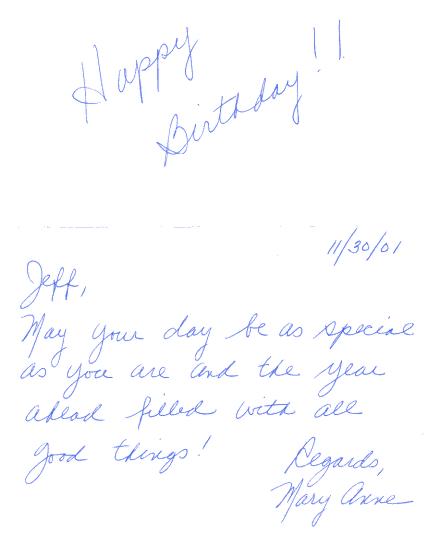 Happy
Birthday!!
11/30/01
Jeff,
May your day be as special
as you are and the year
ahead filled with all
good things!
Regards,
Mary Anne